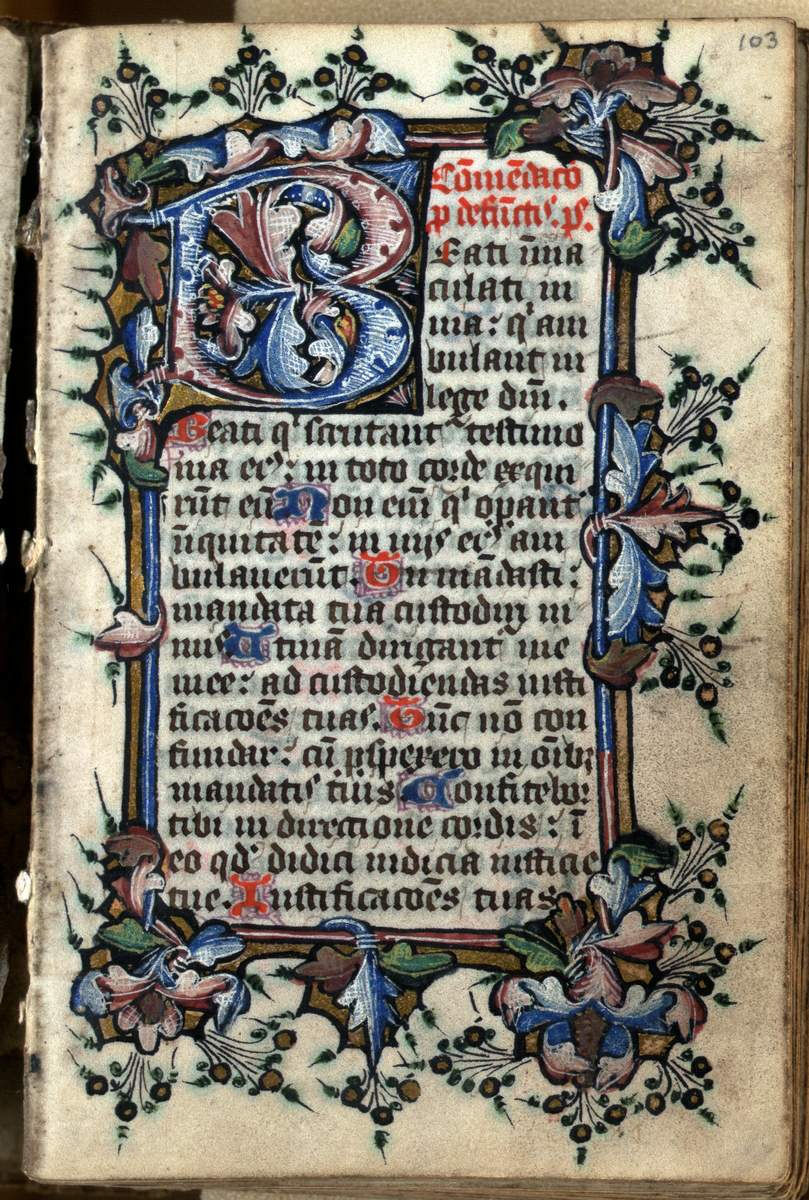 103
Cōmēdacō
p defūctis. ps.
Beati īma
culati in
uia: qi am
bulant in
lege dnī.
Beati qi scrutant testimo
nia eius: in toto corde exqui
rūt eū Non enī qi opant
iīquitatē: in uijs eius am
bulauerūt. Tu mādasti:
mandata tua custodiri ni
mis Utinā dirigant uie
mee: ad custodiēndas iusti
ficacoēs tuas. Tūc nō con
fundar: cū pspexero in oīb;
mandatis tuis Confitebor
tibi in directione cordis: ī
eo qd didici iudicia iusticie
tue. Iustificacoēs tuas